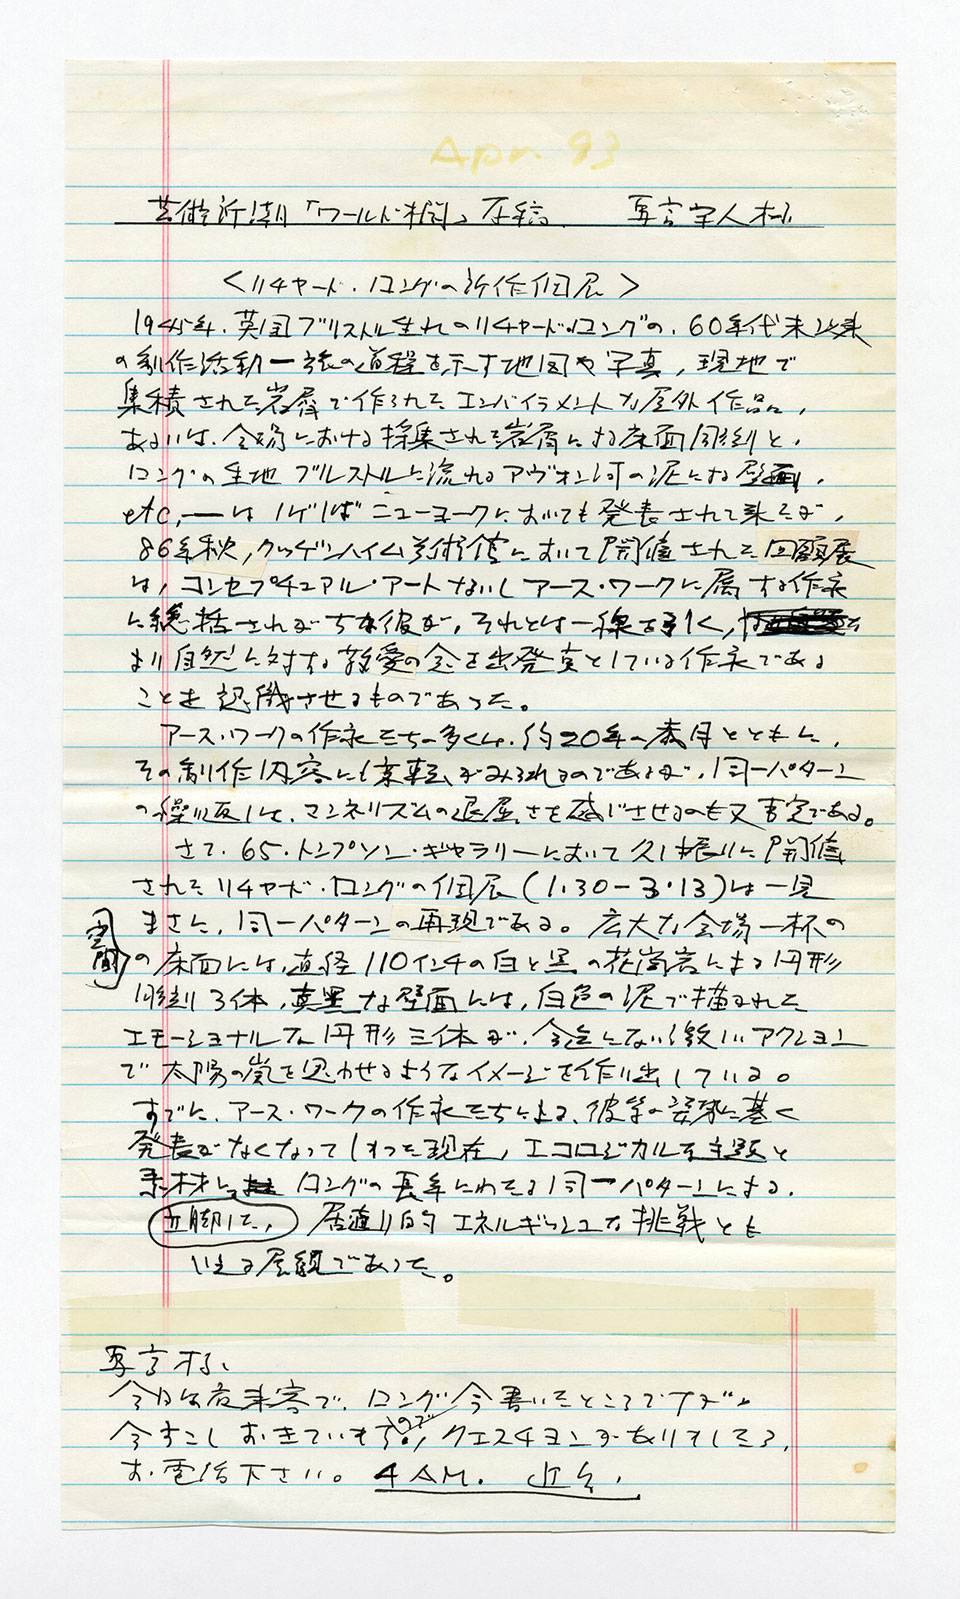 Apr. 93
芸術新潮「ワールド欄」原稿
〈リチャード・ロングの新作個展〉
1945年、英国ブリストル生れのリチャード・ロングの、60年代末以来
の創作活動一旅の道程を示す地図や写真、現地で
集積された岩屑で作られたエンバイラメントな屋外作品、
あるいは、会場における採集された岩屑による床面彫刻と、
ロングの生地ブルストルに流れるアヴォン河の泥による壁画、
etc,―は しばしばニューヨークにおいても発表されて来たが、
86年秋、グッゲンハイム美術館において開催された回顧展
は、コンセプチュアル・アートないしアース・ワークに属する作家
に総括されがちな彼が、それとは一線を引く、
より自然に対する敬愛の念を出発点としている作家である
ことを認識させるものであった。
アース・ワークの作家たちの多くが、約20年の歳月とともに、
その制作内容にも変転がみられるのであるが、同一パターン
の繰り返しは、マンネリズムの退屈さを感じさせるのも又事実である。
さて、65・トンプソン・ギャラリーにおいて久し振りに開催
されたリチャード・ロングの個展(1・30-3・13)は一見
まさに、同一パターンの再現である。広大な会場一杯の
空間
の床面には、直径110インチの白と黒の花崗岩による円形
彫刻3体、真黒な壁面には、白色の泥で描かれた
エモーショナルな円形三体が、今迄にない激しいアクション
で太陽の嵐を思わせるようなイメージを作り出している。
すでに、アース・ワークの作家たちによる、彼等の姿勢に基く
発表がなくなってしまった現在、エコロジカルな主題と
素材に ロングの長年にわたる同一パターンによる、
立脚した、 居直り的エネルギッシュな挑戦とも
いえる展観であった。
今日は夜来客で、ロング今書いたところですが、
今すこしおきていますので、クエスチョンがありましたら、
お電話下さい。4AM.